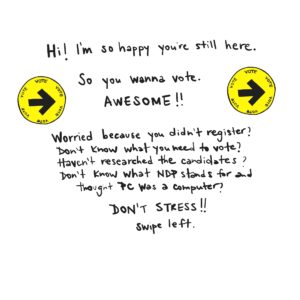 Hi! I'm so happy you're still here.
So you wanna vote.
AWESOME!!
VOTE VOTE VOTE VOTE VOTE
VOTE VOTE VOTE VOTE VOTE
Worried because you didn't register?
Don't know what you need to vote?
Haven't researched the candidates?
Don't know what NDP stands for and
thought PC was a computer?
DON'T STRESS!!
swipe left.